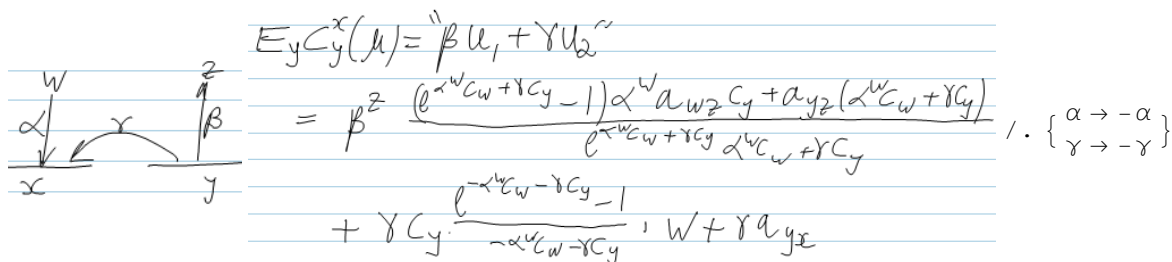 E_y C_y^x(μ) = "β u_1 + γ u_2"
w z
α γ β
x y
= β^z \frac{(e^{α^w c_w + γ c_y} - 1) α^w a_{wz} c_y + a_{yz} (α^w c_w + γ c_y)}{e^{α^w c_w + γ c_y} α^w c_w + γ c_y} /. { α → -α, γ → -γ }
+ γ c_y · \frac{e^{-α^w c_w - γ c_y} - 1}{-α^w c_w - γ c_y} · w + γ a_{yx}